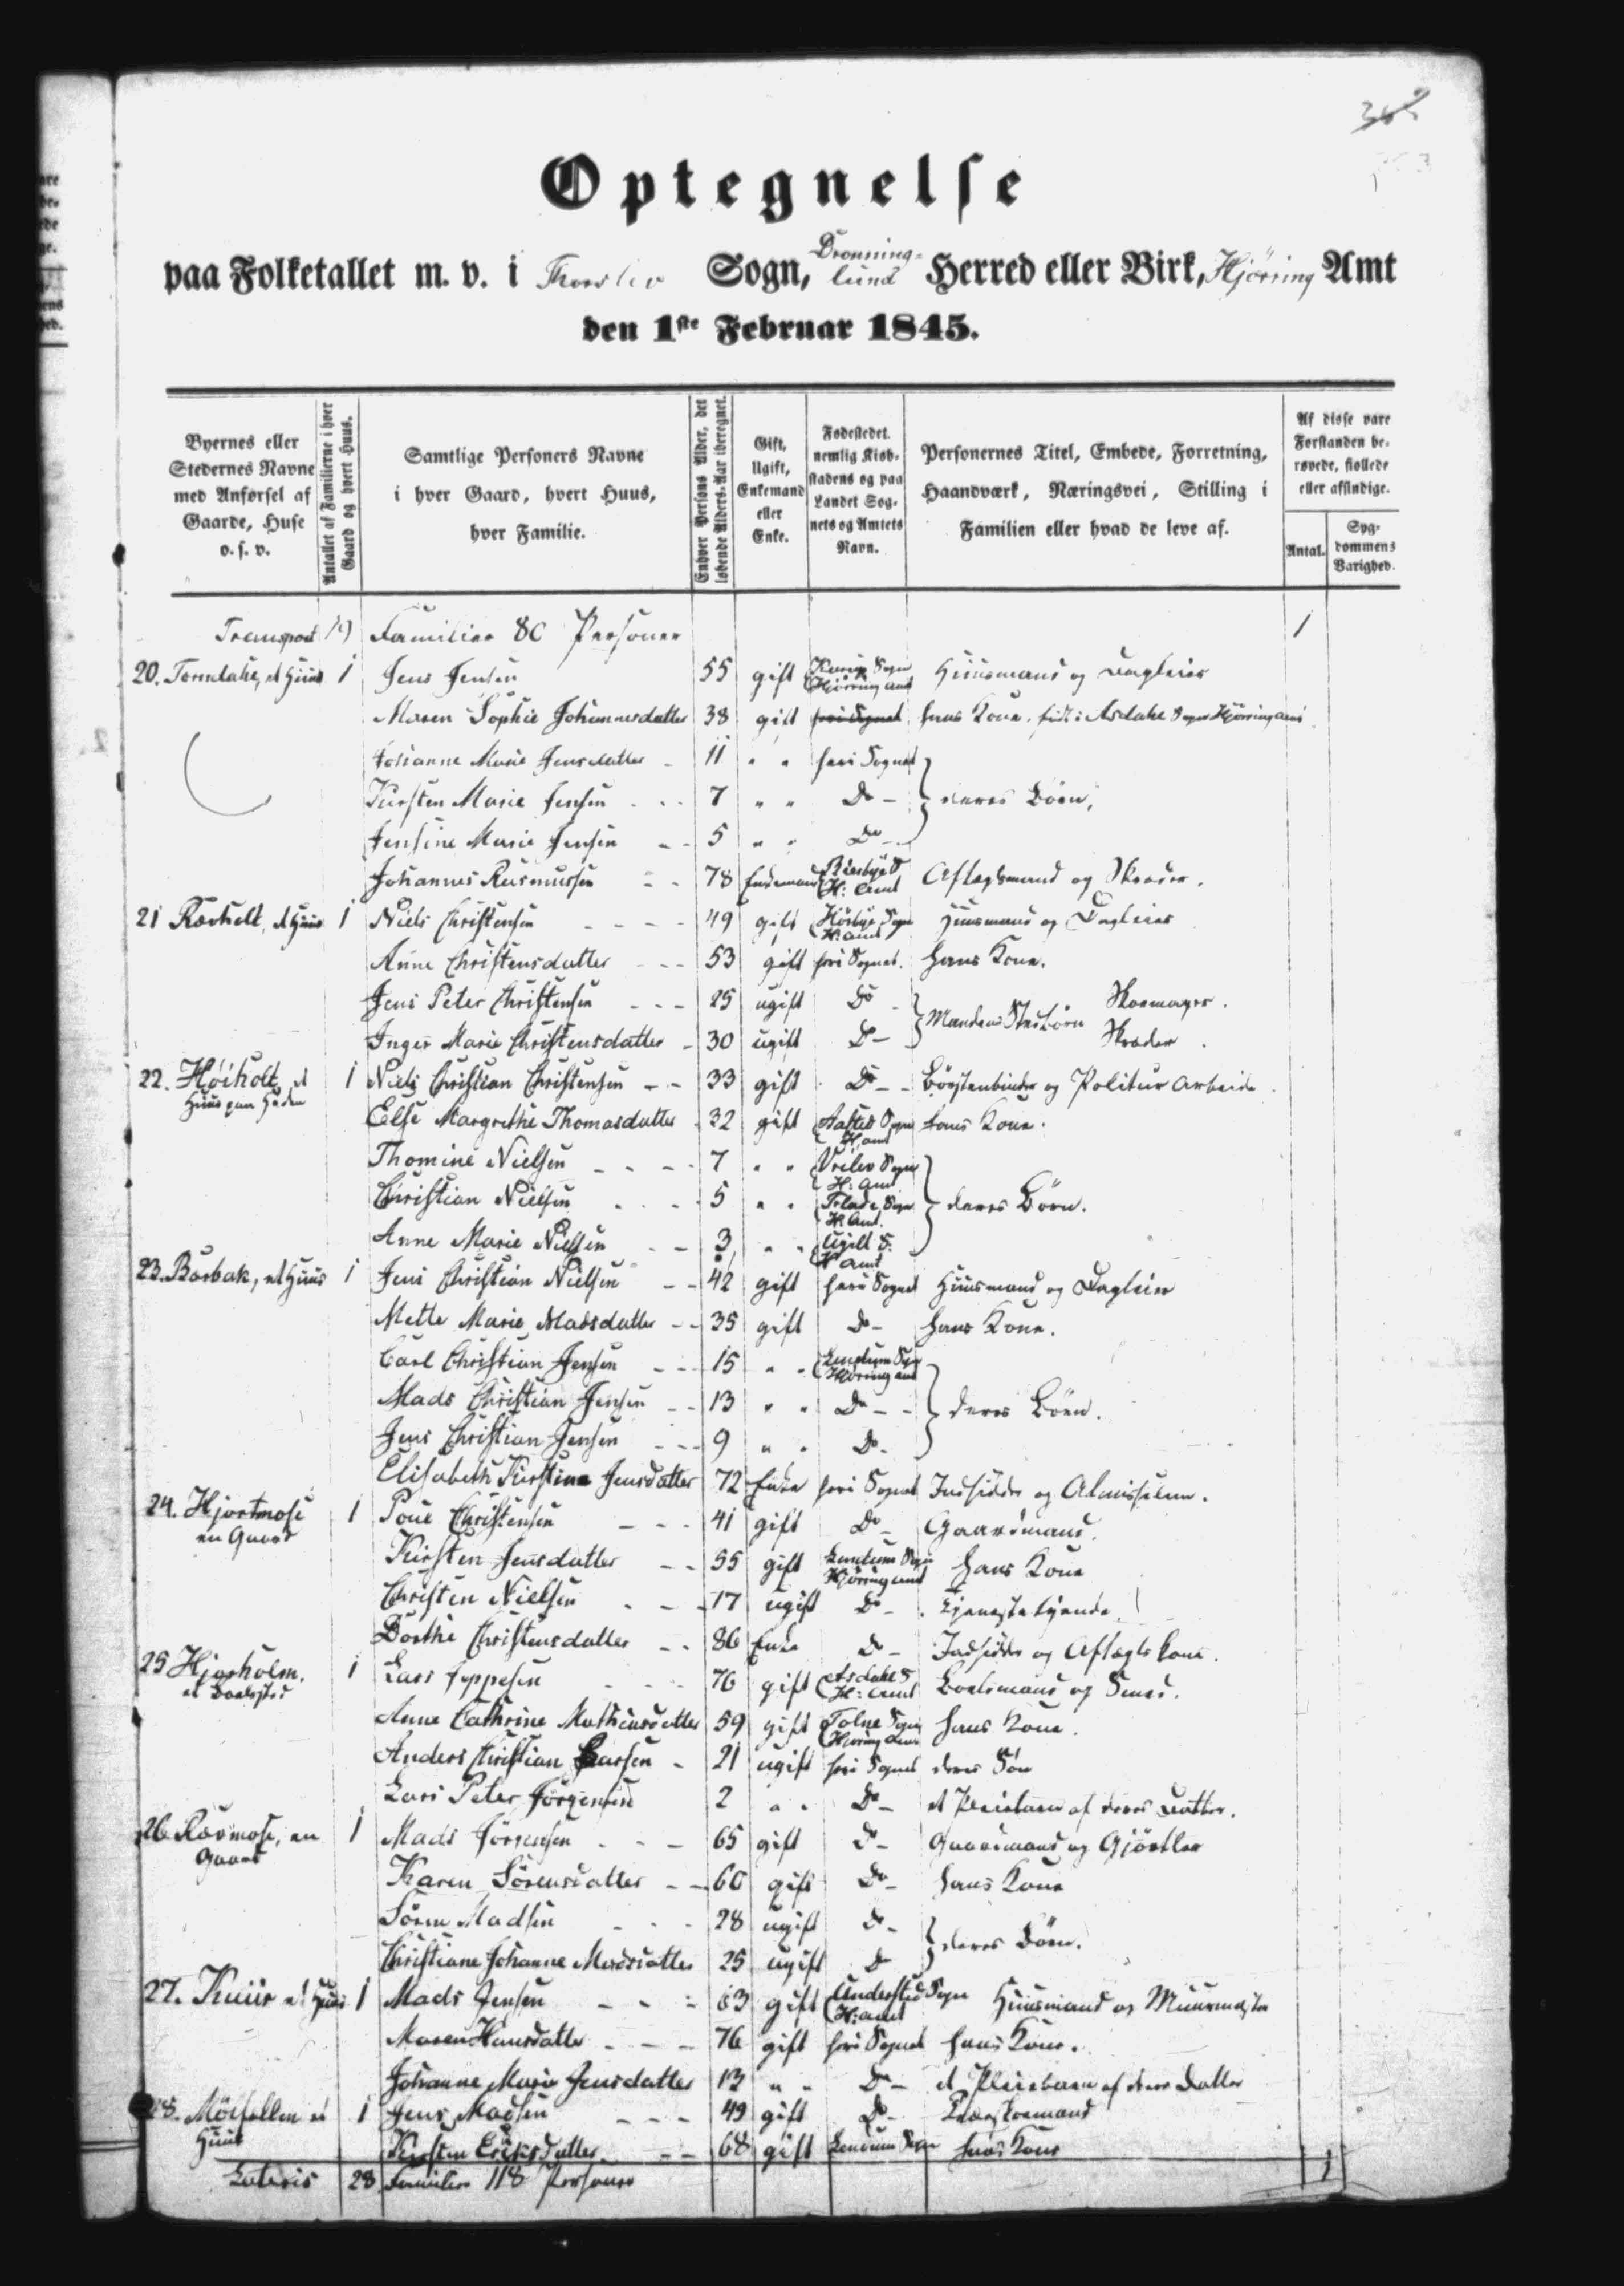 Optegnelse
paa Folketallet m. v. i Thorslev Sogn, Dronninglund Herred eller Birk, Hjörring Amt
den 1ste Februar 1845.
Byernes eller Stedernes Navne med Anførsel af Gaarde, Huse o. s. v.
Antallet af Familierne i hver Gaard og hvert Huus.
Samtlige Personers Navne i hver Gaard, hvert Huus, hver Familie.
Enhver Persons Alder, det løbende Alders-Aar iberegnet.
Gift, Ugift, Enkemand eller Enke.
Fødestedet. nemlig Kiøbstadens og paa Landet Sognets og Amtets Navn.
Personernes Titel, Embede, Forretning, Haandværk, Næringsvei, Stilling i Familien eller hvad de leve af.
Af disse vare Forstanden berøvede, fiollede eller afsindige.
Antal.
Sygdommens Varighed.
Transport 19 Familier 80 Personer 1
20. et Huus 1 Jens Jensen 55 gift Sogn Hjørring Amt Huusmand og Dagleier
Maren Sophie Johannesdatter 38 gift heri Sognet hans Kone. født i Asdahl Sogn Hjørring Amt
Johanne Marie Jensdatter 11 " " heri Sognet
Kirsten Marie Jensen 7 " " Do deres Börn,
Jensine Marie Jensen 5 " " Do
Johannes Rasmussen 78 Enkemand H: Amt Aftægtsmand og Skræder.
21 Rævholt, et Huus 1 Niels Christensen 49 gift Hörbye Sogn H: Amt Huusmand og Dagleier
Anne Christensdatter 53 gift heri Sognet. hans Kone.
Jens Peter Christensen 25 ugift Do Mandens Stedbörn Skoemager.
Inger Marie Christensdatter 30 ugift Do Skræder.
22. Höiholt, et Huus paa Heden 1 Niels Christian Christensen 33 gift Do Börstenbinder og Politur Arbeider
Else Margrethe Thomasdatter 32 gift Aasted Sogn H. Amt hans Kone.
Thomine Nielsen 7 " " Vreilev Sogn H: Amt
Christian Nielsen 5 " " Flade Sogn H. Amt. deres Börn.
Anne Marie Nielsen 3 " " Ugilt S. H Amt
23. Barbak, et Huus 1 Jens Christian Nielsen 42 gift heri Sognet Huusmand og Dagleier
Mette Marie Madsdatter 35 gift Do hans Kone.
Carl Christian Jensen 15 " " Lendum Sogn Hjørring Amt
Mads Christian Jensen 13 " " Do deres Börn.
Jens Christian Jensen 9 " " Do.
Elisabeth Kirstine Jensdatter 72 Enke heri Sognet Indsidder og Almisselem.
24. Hjortmose en Gaard 1 Poul Christensen 41 gift Do Gaardmand.
Kirsten Jensdatter 55 gift Lendum Sogn Hjørring Amt hans Kone
Christen Nielsen 17 ugift Do Tjenestetyende.
Dorthe Christensdatter 86 Enke Do Indsidder og Aftægts Kone.
25 Hjorholm. et Boelsted 1 Lars Jeppesen 76 gift Asdahl S H: Amt Boelsmand og Smed.
Anne Cathrine Mathiasdatter 59 gift Tolne Sogn Hjørring Amt hans Kone.
Anders Christian Larsen 21 ugift heri Sognet deres Sön
Lars Peter Jörgensen 2 " " Do et Pleiebarn af deres Datter.
26 Rævmose, en Gaard 1 Mads Jörgensen 65 gift Do Gaardmand og Gjörtler
Karen Sörensdatter 60 gift Do hans Kone
Sören Madsen 28 ugift Do
Christiane Johanne Madsdatter 25 ugift Do deres Börn.
27. et Huus 1 Mads Jensen 63 gift Understed Sogn H: Amt Huusmand og Muurmester
Maren Hansdatter 76 gift heri Sognet hans Kone.
Johanne Marie Jensdatter 13 " " Do et Pleiebarn af deres Datter
28. et Huus 1 Jens Madsen 49 gift Do
Kirsten Eriksdatter 68 gift Lendum Sogn hans Kone
Lateris 28 Familier 118 Personer 1